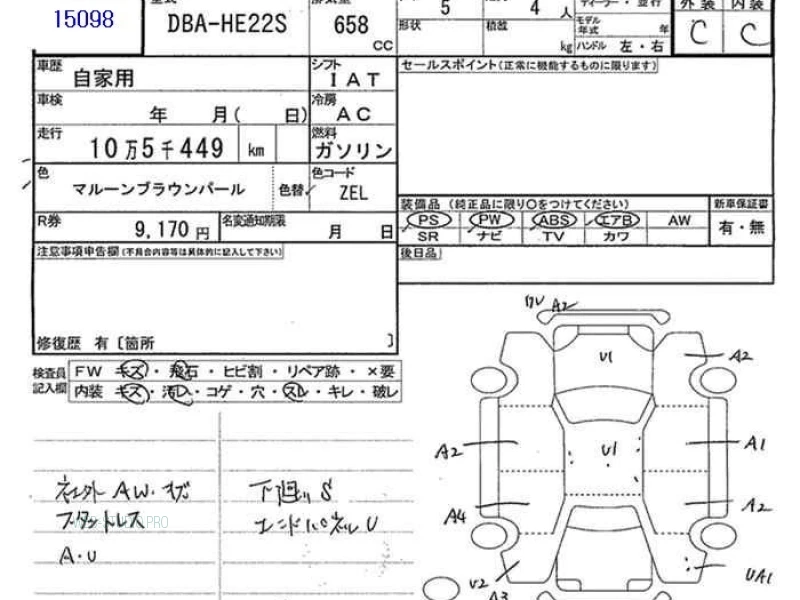 15098
DBA-HE22S
658
CC
5
4
人
外装 内装
形状
積載
kg
モデル年式
年
ハンドル 左・右
C C
車歴
自家用
シフト
IAT
セールスポイント(正常に機能するものに限ります)
車検
年 月( 日)
冷房
AC
走行
10万5千449 km
燃料
ガソリン
色
マルーンブラウンパール
色替
色コード
ZEL
装備品 (純正品に限り〇をつけてください)
新車保証書
PS PW ABS エアB AW
有・無
SR ナビ TV カワ
R券
9,170円
名変通知期限
月 日
注意事項申告欄(不具合内容等は具体的に記入して下さい)
後日品
修復歴 有〔箇所 〕
検査員記入欄
FW キズ・飛石・ヒビ割・リペア跡・×要
内装 キズ・汚れ・コゲ・穴・スレ・キレ・破レ
A2
U1
A2
A2
U1
A1
A4
A2
U2
A3
UA1
社外 AW.キズ
スタットレス
A・U
下廻り S
エンドパネル U